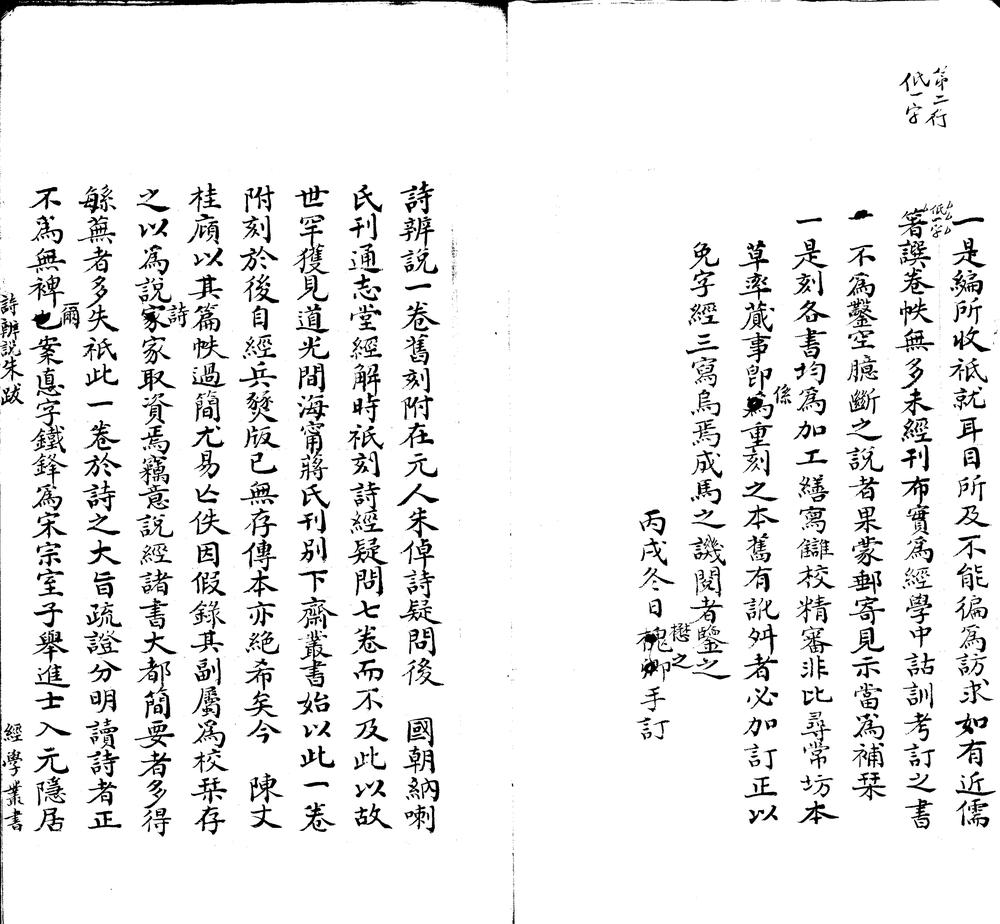 第二行
低一字
一是編所收祇就耳目所及不能徧為訪求如有近儒
低一字
箸譔卷帙無多未經刊布實為經學中詁訓考訂之書
不為鑿空臆斷之說者果蒙郵寄見示當為補栞
一是刻各書均為加工繕寫讎校精審非比尋常坊本
草率蕆事卽係重刻之本舊有訛舛者必加訂正以
免字經三寫烏焉成馬之譏閱者鑒之
丙戌冬日懋之手訂
詩辨說一卷舊刻附在元人朱倬詩疑問後　國朝納喇
氏刊通志堂經解時祇刻詩經疑問七卷而不及此以故
世罕獲見道光間海甯蔣氏刊別下齋叢書始以此一卷
附刻於後自經兵燹版已無存傳本亦絕希矣今　陳丈
桂廎以其篇帙過簡尤易亡佚因假錄其副屬為校栞存
之以為說詩家取資焉竊意說經諸書大都簡要者多得
緐蕪者多失祇此一卷於詩之大旨疏證分明讀詩者正
不為無裨爾案惪字鐵鋒為宋宗室子舉進士入元隱居
詩辨說朱跋
經學叢書